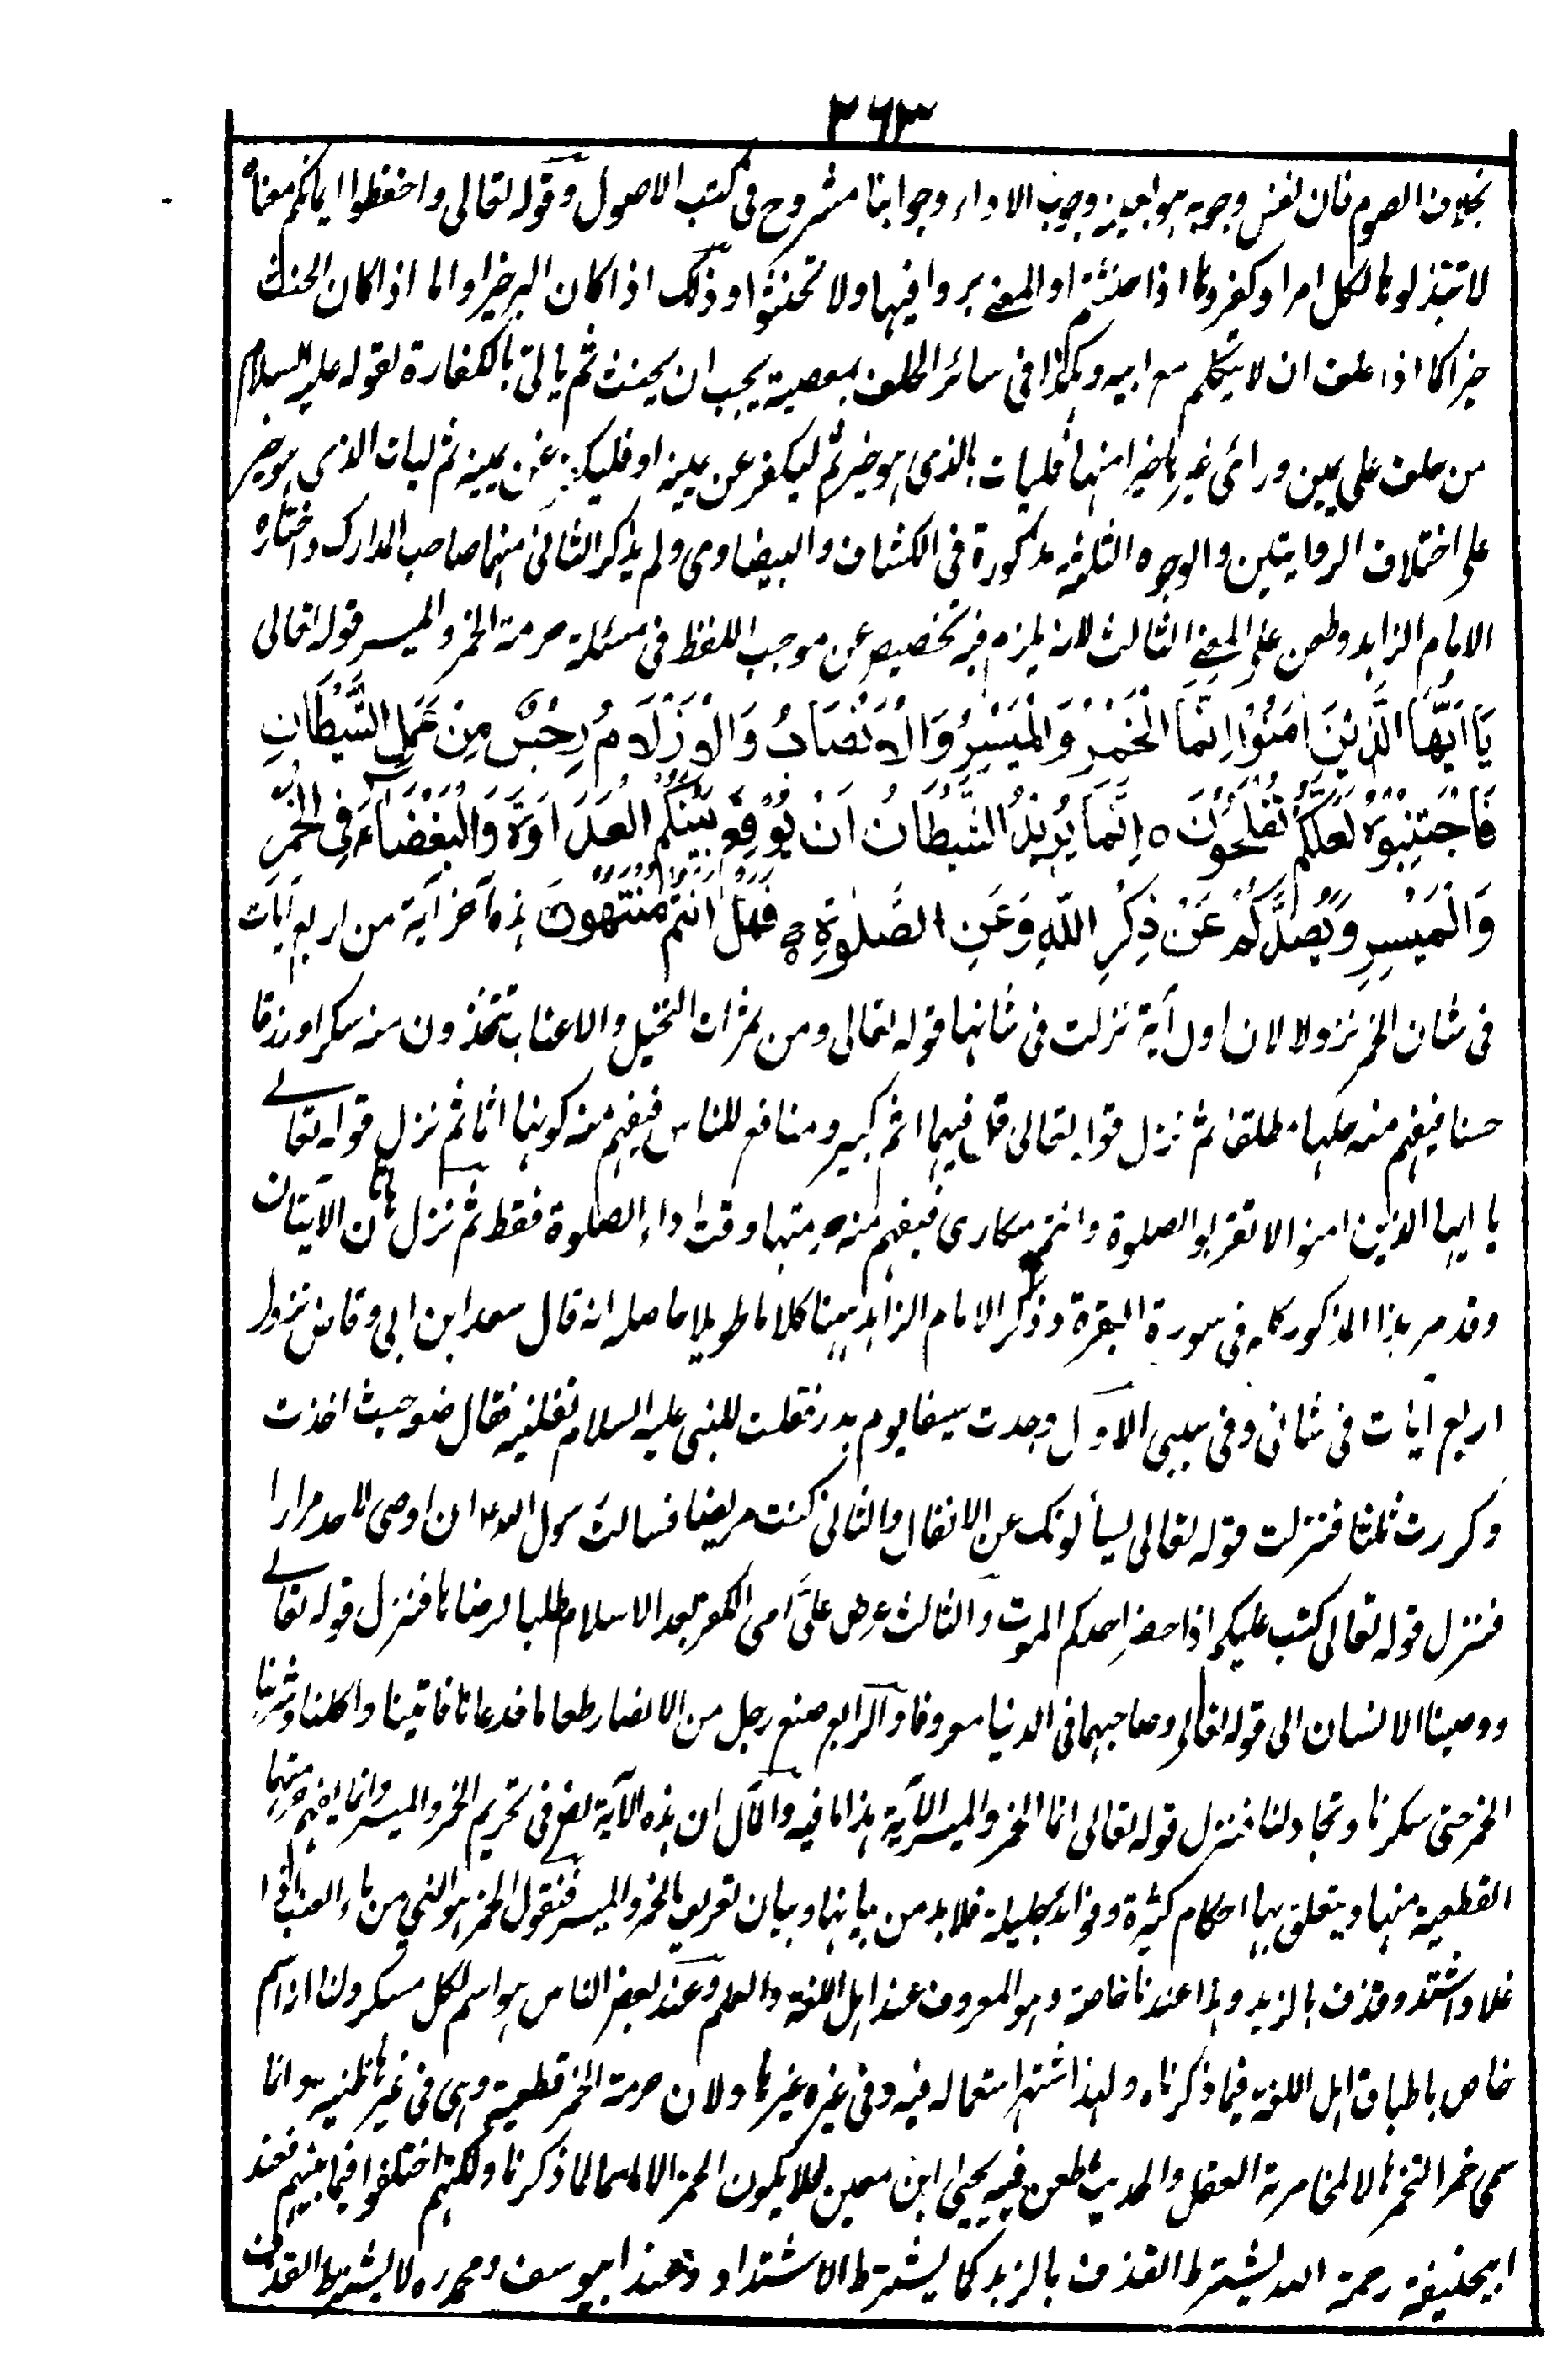 ٣٦٣
بخلاف الصوم فان نفس وجوبه هو بعينه وجوب الاداء وجوابنا مشروح فى كتب الاصول وقوله تعالى واحفظوا ايمانكم معناه
لا تبتذلوها لكل امر او كفروها اذا حنثتم او المعنے بروا فيها ولا تحنثوا وذلك اذا كان البر خيرا واما اذا كان الحنث
خيرا كما اذا حلف ان لا يتكلم مع ابيه وهكذا فى سائر الحلف بمعصية يجب ان يحنث ثم ياتى بالكفارة لقوله عليه السلام
من حلف على يمين ورائى غيرها خيرا منها فليات بالذى هو خير ثم ليكفر عن يمينه او فليكفر عن يمينه ثم ليات الذى هو خير
على اختلاف الروايتين والوجوه الثلثه مذكورة فى الكشاف والبيضاوى ولم يذكر الثانى منها صاحب المدارك واختاره
الامام الزاهد وطعن على المعنے الثالث لانه يلزم فيه تخصيص عن موجب اللفظ فى مسئلة حرمة الخمر والميسر قوله تعالى
يَا اَيُّهَا الَّذِيْنَ اٰمَنُوْا اِنَّمَا الْخَمْرُ وَالْمَيْسِرُ وَالْاَنْصَابُ وَالْاَزْلَامُ رِجْسٌ مِنْ عَمَلِ الشَّيْطَانِ
فَاجْتَنِبُوْهُ لَعَلَّكُمْ تُفْلِحُوْنَ ○ اِنَّمَا يُرِيْدُ الشَّيْطَانُ اَنْ يُوْقِعَ بَيْنَكُمُ الْعَدَاوَةَ وَالْبَغْضَاءَ فِى الْخَمْرِ
وَالْمَيْسِرِ وَيَصُدَّكُمْ عَنْ ذِكْرِ اللّٰهِ وَعَنِ الصَّلٰوةِ ج فَهَلْ اَنْتُمْ مُنْتَهُوْنَ هذه آخر آية من اربع آيات
فى شان الخمر نزولا لان اول آية نزلت فى شانها قوله تعالى ومن ثمرات النخيل والاعناب تتخذون منه سكرا ورزقا
حسنا فيفهم منه حلها مطلقا ثم نزل قوله تعالى قل فيهما اثم كبير ومنافع للناس فيفهم منه كونها اثما ثم نزل قوله تعالے
يا ايها الذين امنوا لا تقربوا الصلوة وانتم سكارى فيفهم منه حرمتها وقت اداء الصلوة فقط ثم نزل هاتان الآيتان
وقد مر هذا المذكور كله فى سورة البقرة وذكر الامام الزاهد ههنا كلاما طويلا حاصله انه قال سعد ابن ابى وقاص نزول
اربع آيات فى شانى وفى سببى الاول وجدت سيفا يوم بدر فقلت للنبى عليه السلام نفلنيه فقال ضع حيث اخذت
وكررت ثلثا فنزلت قوله تعالى يسألونك عن الانفال والثانى كنت مريضا فسالت رسول الله ان اوصى مرارا
فنزل قوله تعالى كتب عليكم اذا حضر احدكم الموت والثالث عرض علىّ امى الكفر بعد الاسلام طلبا لرضاها فنزل قوله تعالے
ووصينا الانسان الى قوله تعالى وصاحبهما فى الدنيا معروفا والرابع صنع رجل من الانصار طعاما فدعانا فاتينا واكلنا وشربنا
الخمر حتى سكرنا وتجادلنا فنزل قوله تعالى انما الخمر والميسر الآية هذا ما فيه والمآل ان هذه الآية نص فى تحريم الخمر والميسر وانما يفهم حرمتها
القطعية منها ويتعلق بها احكام كثيرة وفوائد جليلة فلابد من بيانها وبيان تعريف الخمر والميسر فنقول الخمر هو النئ من ماء العنب اذا
غلا واشتد وقذف بالزبد وهذا عندنا خاصة وهو المعروف عند اهل اللغة والعلم وعند بعض الناس هو اسم لكل مسكر ولنا انه اسم
خاص باطباق اهل اللغة فيما ذكرناه ولهذا اشتهر استعماله فيه وفى غيره غيرها ولان حرمة الخمر قطعية وهى فى غيرها ظنية وانما
سمى خمرا لتخمرها لا لمخامرته العقل والحديث طعن فيه يحيى ابن معين فلا يكون الخمر الا اسما لما ذكرنا ولكنهم اختلفوا فيما بينهم فعند
ابيحنيفة رحمة الله يشترط القذف بالزبد كما يشترط الاشتداد وعند ابيوسف ومحمد ره لا يشترط القذف